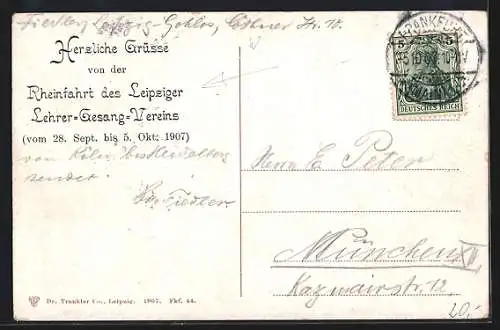 Fiedler, Leipzig-Gohlis, Cöthner Str. 18.
Herzliche Grüsse
von der
Rheinfahrt des Leipziger
Lehrer=Gesang=Vereins
(vom 28. Sept. bis 5. Okt. 1907)
von Köln bis
sendet
Fiedler
FRANKFURT
(MAIN)
5 5
DEUTSCHES REICH
Herrn E. Peter
München
Kazmairstr. 12.
Dr. Trenkler Co., Leipzig. 1907. Fkf. 44.
20,-